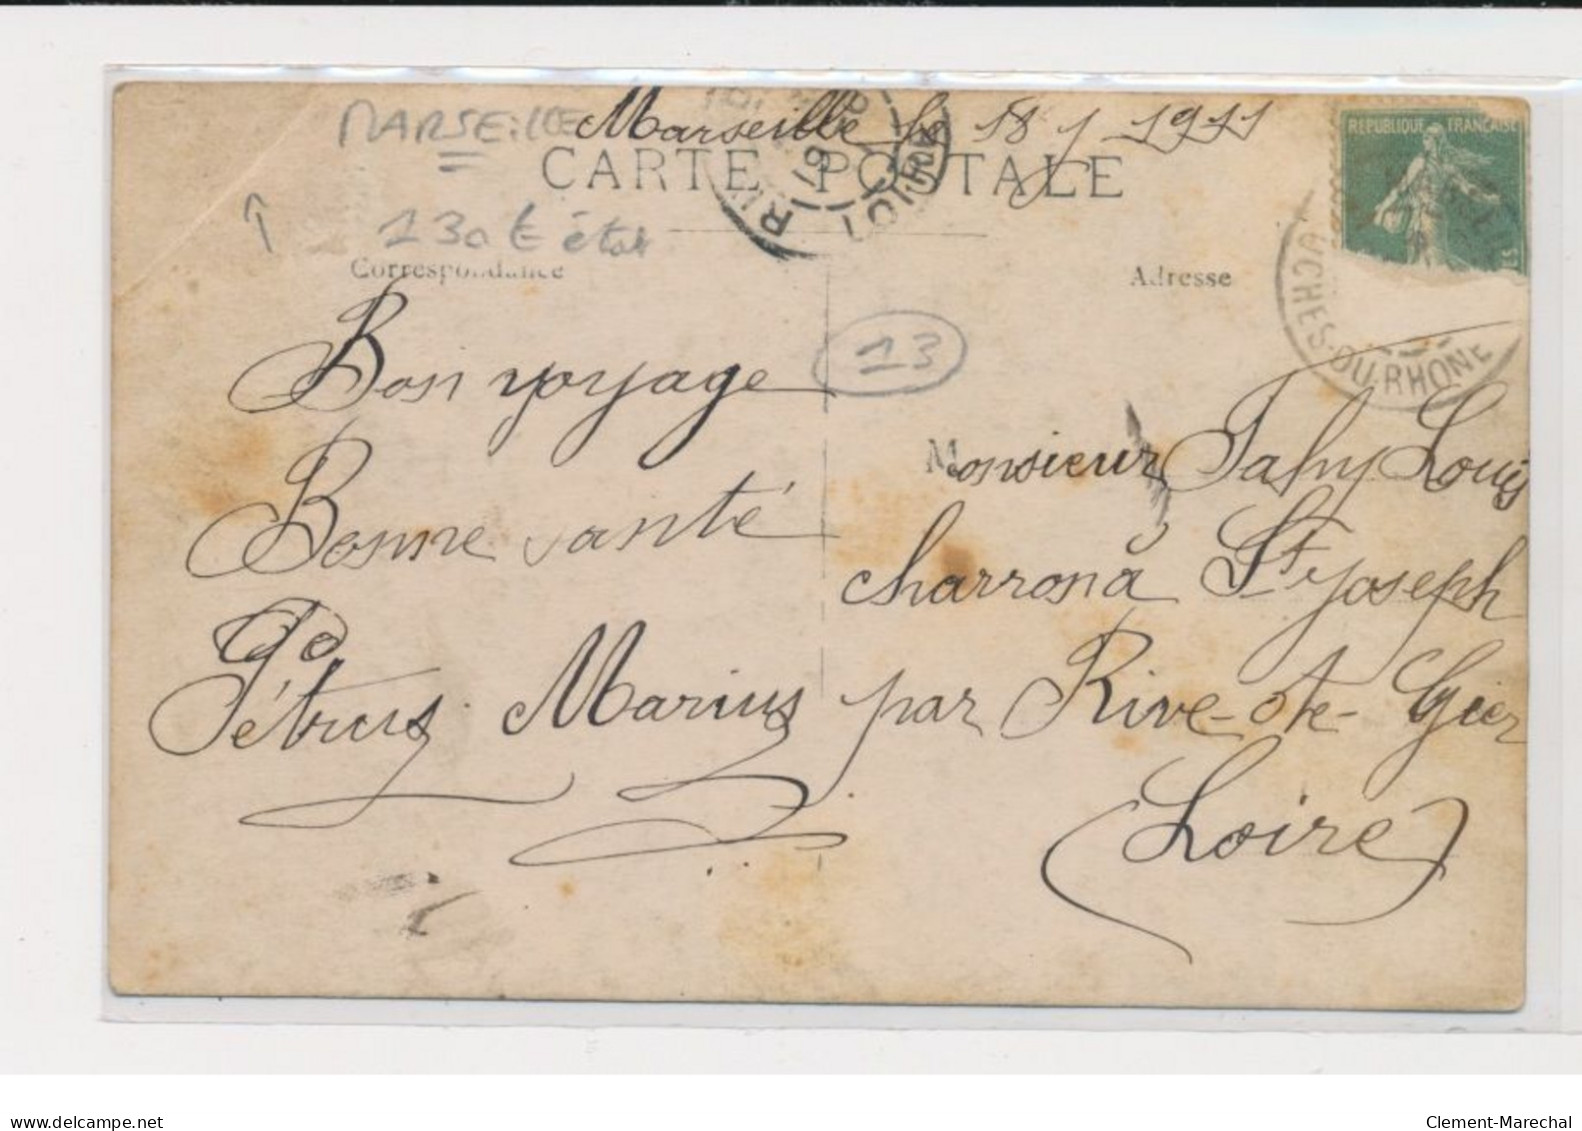 MARSEILLE
Marseille le 18 1 1911
CARTE POSTALE
13
Correspondance
Adresse
RÉPUBLIQUE FRANÇAISE
UCHES-DU-RHONE
13
Bon voyage
Bonne santé
Pétrus Marius
Monsieur Fahy Louis
charron à St Joseph
par Rive-de-Gier
(Loire)
www.delcampe.net
Clement-Marechal